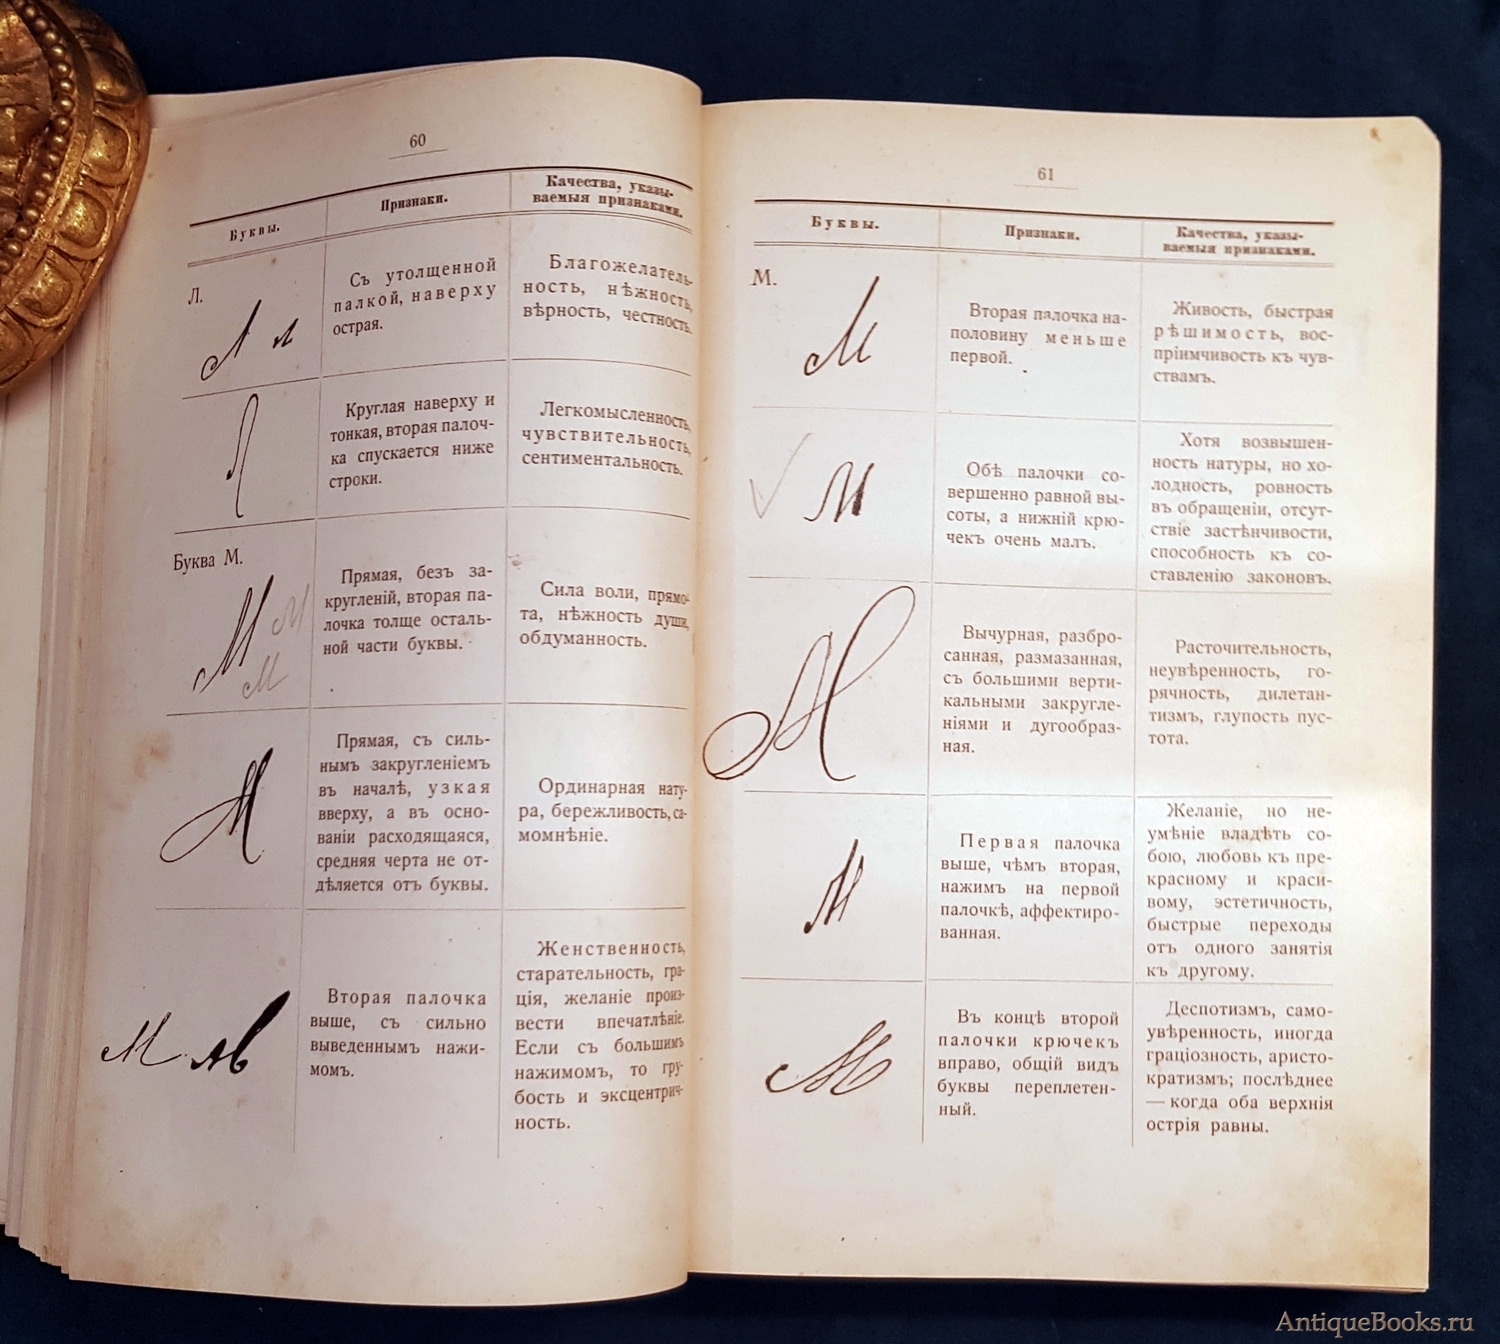 60
Буквы.
Признаки.
Качества, указы-
ваемыя признаками.
Л.
Съ утолщенной
палкой, наверху
острая.
Благожелатель-
ность, нѣжность,
вѣрность, честность.
Круглая наверху и
тонкая, вторая палоч-
ка спускается ниже
строки.
Легкомысленность,
чувствительность,
сентиментальность.
Буква М.
Прямая, безъ за-
кругленій, вторая па-
лочка толще осталь-
ной части буквы.
Сила воли, прямо-
та, нѣжность души,
обдуманность.
Прямая, съ силь-
нымъ закругленіемъ
въ началѣ, узкая
вверху, а въ осно-
ваніи расходящаяся,
средняя черта не от-
дѣляется отъ буквы.
Ординарная нату-
ра, бережливость, са-
момнѣніе.
Вторая палочка
выше, съ сильно
выведеннымъ нажи-
момъ.
Женственность,
старательность, гра-
ція, желаніе произ-
вести впечатлѣніе.
Если съ большимъ
нажимомъ, то гру-
бость и эксцентрич-
ность.
61
Буквы.
Признаки.
Качества, указы-
ваемыя признаками.
М.
М
Вторая палочка на-
половину меньше
первой.
Живость, быстрая
рѣшимость, вос-
пріимчивость къ чув-
ствамъ.
М
Обѣ палочки со-
вершенно равной вы-
соты, а нижній крю-
чекъ очень малъ.
Хотя возвышен-
ность натуры, но хо-
лодность, ровность
въ обращеніи, отсут-
ствіе застѣнчивости,
способность къ со-
ставленію законовъ.
М
Вычурная, разбро-
санная, размазанная,
съ большими верти-
кальными закругле-
ніями и дугообраз-
ная.
Расточительность,
неувѣренность, го-
рячность, дилетан-
тизмъ, глупость пус-
тота.
М
Первая палочка
выше, чѣмъ вторая,
нажимъ на первой
палочкѣ, аффектиро-
ванная.
Желаніе, но не-
умѣніе владѣть со-
бою, любовь къ пре-
красному и краси-
вому, эстетичность,
быстрые переходы
отъ одного занятія
къ другому.
М
Въ концѣ второй
палочки крючекъ
вправо, общій видъ
буквы переплетен-
ный.
Деспотизмъ, само-
увѣренность, иногда
граціозность, аристо-
кратизмъ; послѣднее
— когда оба верхнія
острія равны.
AntiqueBooks.ru